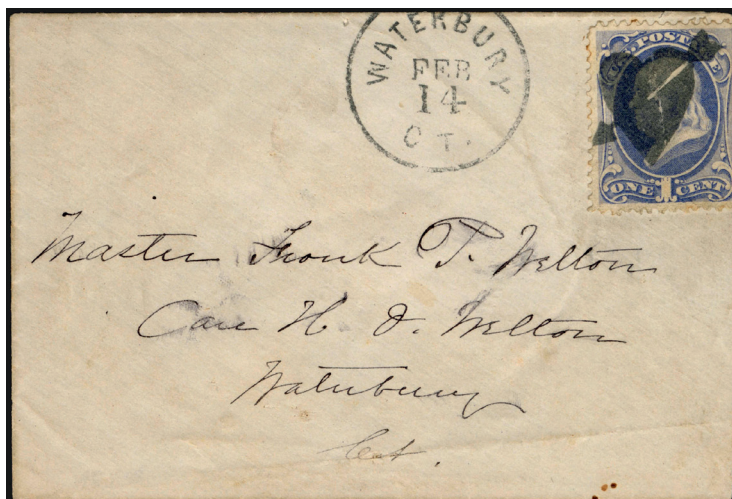 WATERBURY
FEB
14
CT.
U.S. POSTAGE
ONE 1 CENT
Master Frank P. Welton
Care H. D. Welton
Waterbury
Ct.